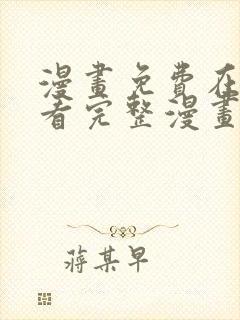 漫畫免費在
看完整漫畫
蔣某早